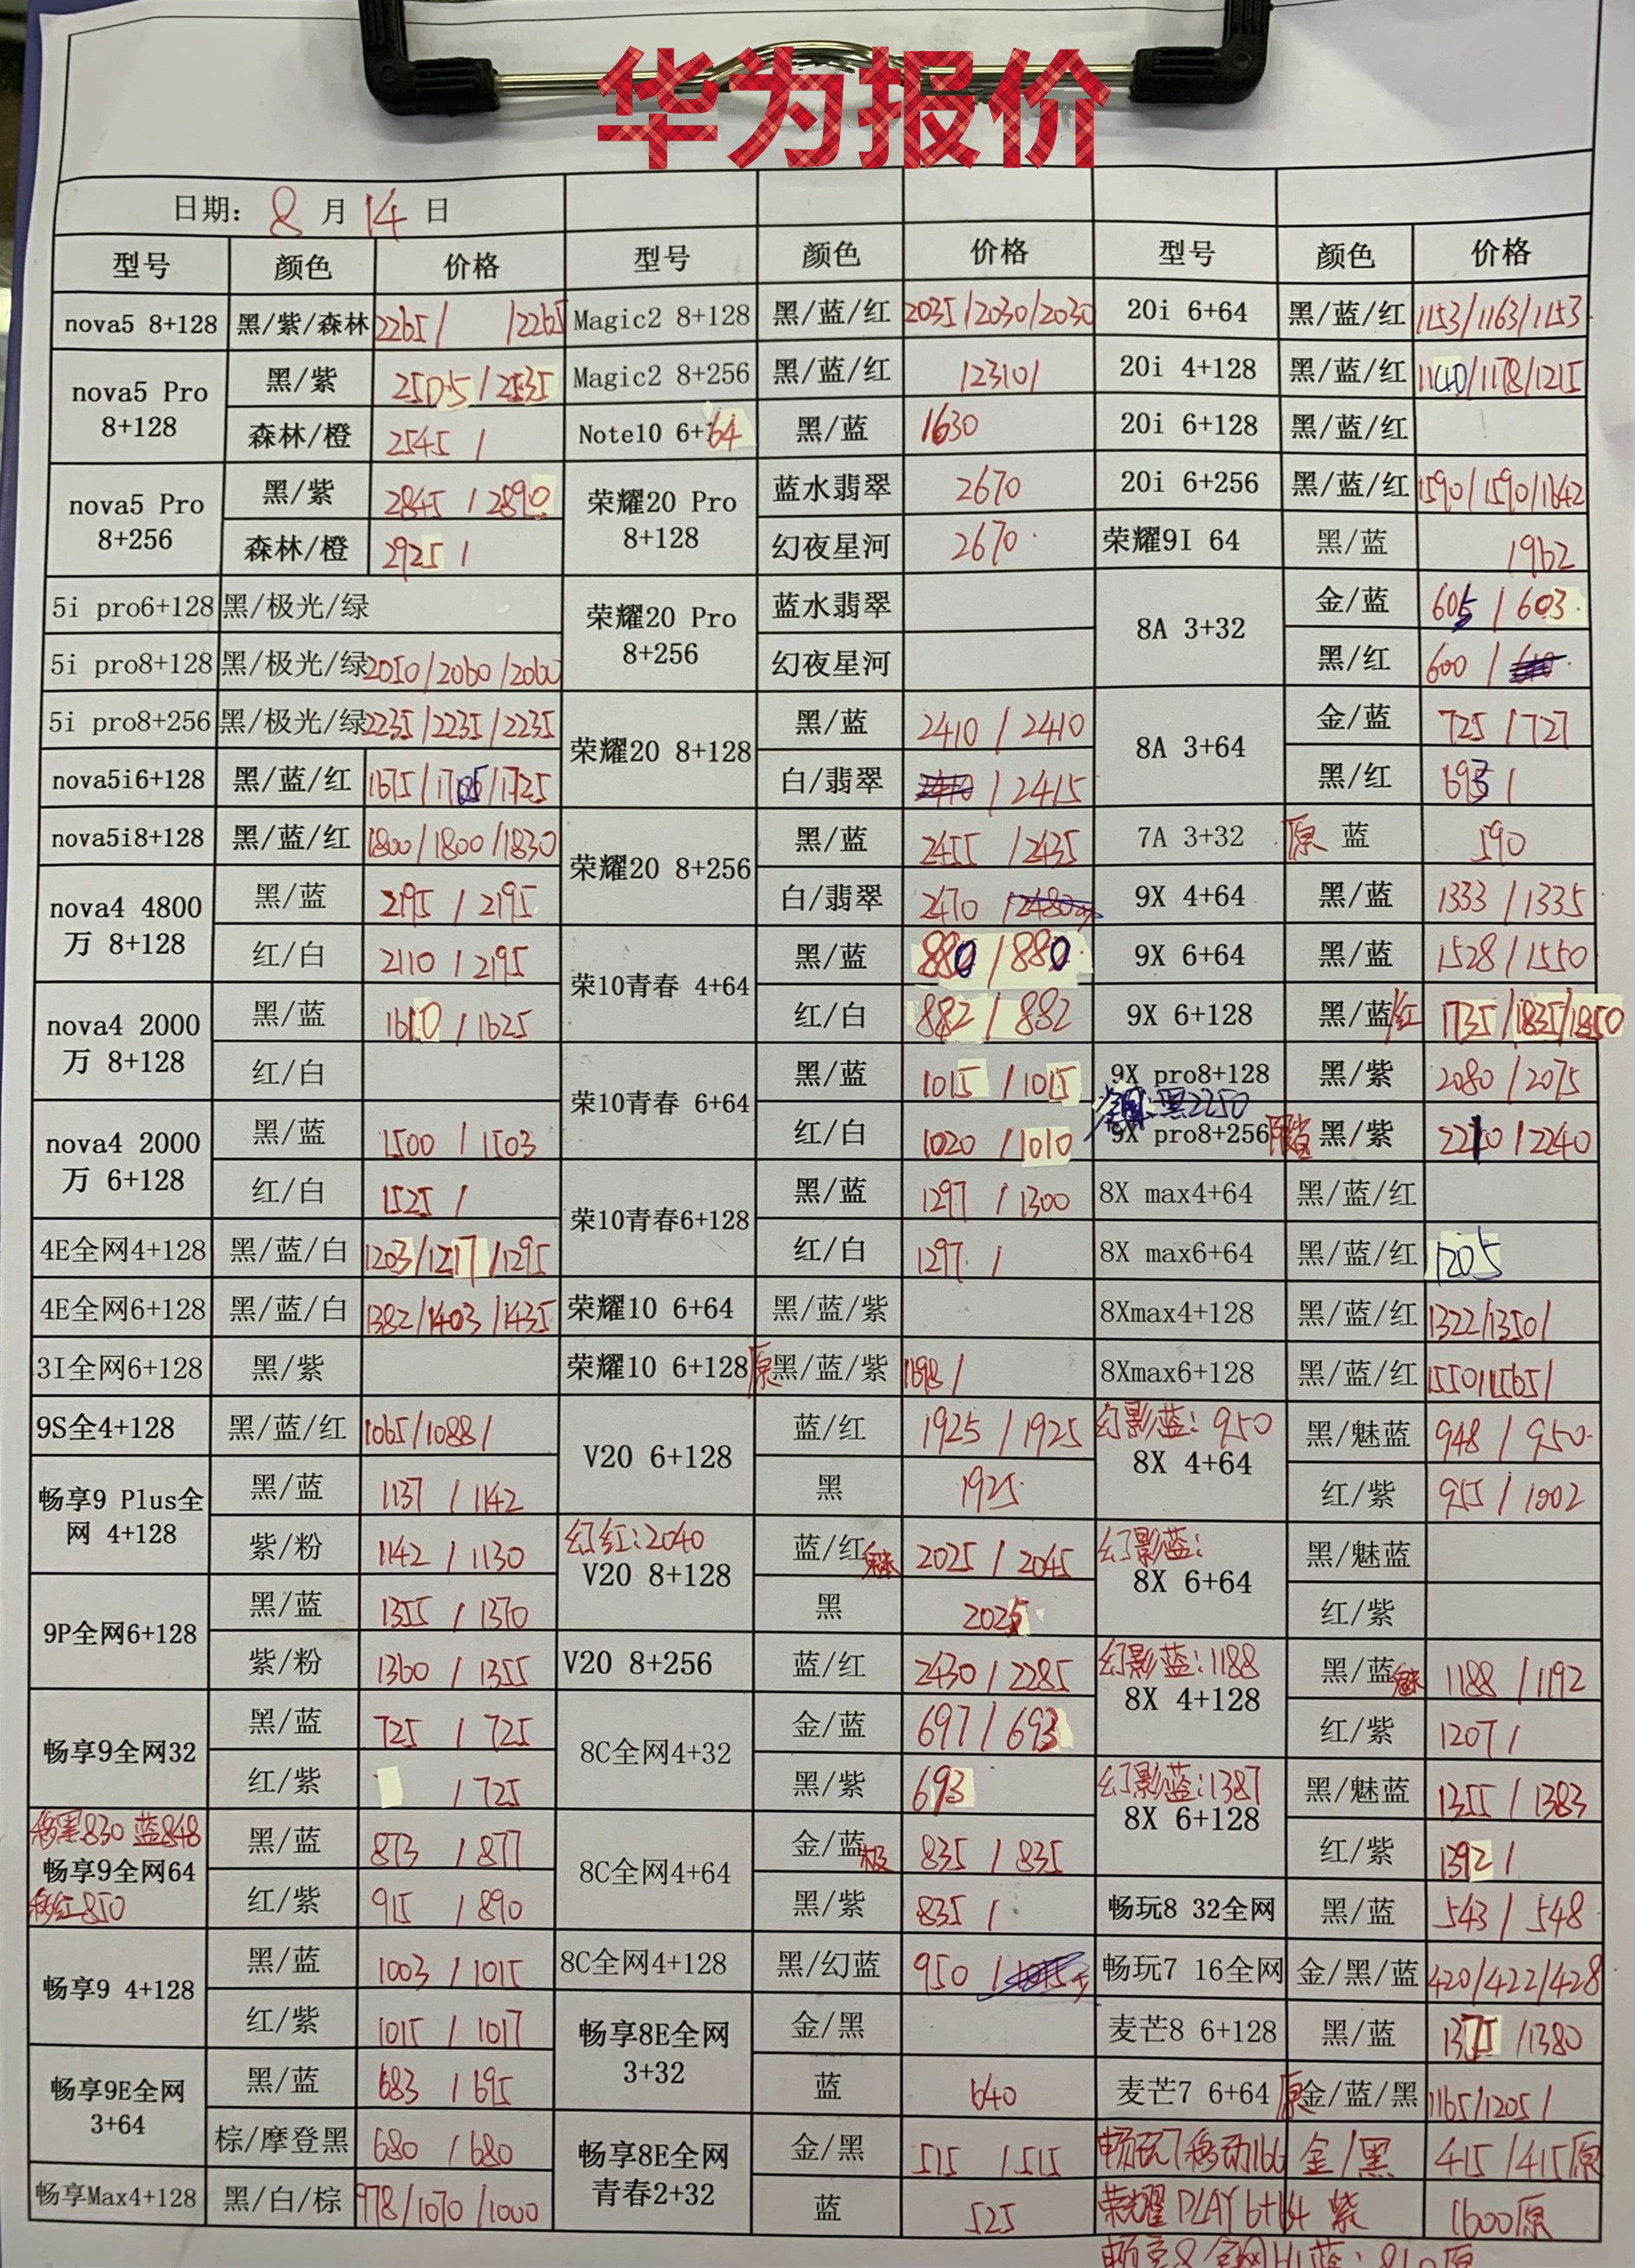 华为报价
日期: 8 月 14 日
型号 颜色 价格 型号 颜色 价格 型号 颜色 价格
nova5 8+128 黑/紫/森林 2265/ /2265 Magic2 8+128 黑/蓝/红 2035/2030/2030 20i 6+64 黑/蓝/红 1153/1163/1153
nova5 Pro 8+128 黑/紫 2505/2535 Magic2 8+256 黑/蓝/红 /2310/ 20i 4+128 黑/蓝/红 1140/1178/1215
森林/橙 2545/ Note10 6+64 黑/蓝 1630 20i 6+128 黑/蓝/红
nova5 Pro 8+256 黑/紫 2845/2890 荣耀20 Pro 8+128 蓝水翡翠 2670 20i 6+256 黑/蓝/红 1590/1590/1642
森林/橙 2925/ 幻夜星河 2670 荣耀9I 64 黑/蓝 /962
5i pro6+128 黑/极光/绿 荣耀20 Pro 8+256 蓝水翡翠 8A 3+32 金/蓝 605/603
5i pro8+128 黑/极光/绿 2050/2060/2060 幻夜星河 黑/红 600/
5i pro8+256 黑/极光/绿 2235/2235/2235 荣耀20 8+128 黑/蓝 2410/2410 8A 3+64 金/蓝 725/727
nova5i6+128 黑/蓝/红 1675/1705/1725 白/翡翠 /2415 黑/红 693/
nova5i8+128 黑/蓝/红 1800/1800/1830 荣耀20 8+256 黑/蓝 2455/2435 7A 3+32 原 蓝 590
nova4 4800万 8+128 黑/蓝 2195/2195 白/翡翠 2470/ 9X 4+64 黑/蓝 1333/1335
红/白 2110/2195 荣10青春 4+64 黑/蓝 880/880 9X 6+64 黑/蓝 1528/1550
nova4 2000万 8+128 黑/蓝 1610/1625 红/白 882/882 9X 6+128 黑/蓝/红 1735/1835/1850
红/白 荣10青春 6+64 黑/蓝 1015/1015 9X pro8+128 黑/紫 2080/2075
黑2250
nova4 2000万 6+128 黑/蓝 1500/1503 红/白 1020/1010 9X pro8+256 黑/紫 2210/2240
红/白 1525/ 荣10青春6+128 黑/蓝 1297/1300 8X max4+64 黑/蓝/红
4E全网4+128 黑/蓝/白 1203/1217/1295 红/白 1297/ 8X max6+64 黑/蓝/红 1205
4E全网6+128 黑/蓝/白 1382/1403/1435 荣耀10 6+64 黑/蓝/紫 8Xmax4+128 黑/蓝/红 1322/1350/
3I全网6+128 黑/紫 荣耀10 6+128 原 黑/蓝/紫 1698/ 8Xmax6+128 黑/蓝/红 1550/1565/
9S全4+128 黑/蓝/红 1065/1088/ V20 6+128 蓝/红 1925/1925 幻影蓝: 950 8X 4+64 黑/魅蓝 948/950
畅享9 Plus全网 4+128 黑/蓝 1137/1142 黑 1925 红/紫 955/1002
紫/粉 1142/1130 幻红:2040 V20 8+128 蓝/红 魅 2025/2045 幻影蓝: 8X 6+64 黑/魅蓝
9P全网6+128 黑/蓝 1355/1370 黑 2025 红/紫
紫/粉 1360/1355 V20 8+256 蓝/红 2430/2285 幻影蓝:1188 8X 4+128 黑/蓝 魅 1188/1192
畅享9全网32 黑/蓝 725/725 8C全网4+32 金/蓝 697/693 红/紫 1207/
红/紫 /725 黑/紫 693 幻影蓝:1387 8X 6+128 黑/魅蓝 1355/1383
移黑830 蓝848 畅享9全网64 黑/蓝 873/877 8C全网4+64 金/蓝 极 835/835 红/紫 1392/
移红850 红/紫 915/890 黑/紫 835/ 畅玩8 32全网 黑/蓝 543/548
畅享9 4+128 黑/蓝 1003/1015 8C全网4+128 黑/幻蓝 950/ 畅玩7 16全网 金/黑/蓝 420/422/428
红/紫 1015/1017 畅享8E全网 3+32 金/黑 麦芒8 6+128 黑/蓝 1375/1380
畅享9E全网 3+64 黑/蓝 683/695 蓝 640 麦芒7 6+64 原 金/蓝/黑 1165/1205/
棕/摩登黑 680/680 畅享8E全网 青春2+32 金/黑 515/515 畅玩7移动16G 金/黑 415/415原
畅享Max4+128 黑/白/棕 978/1070/1000 蓝 525 荣耀PLAY 6+64 紫 1600原